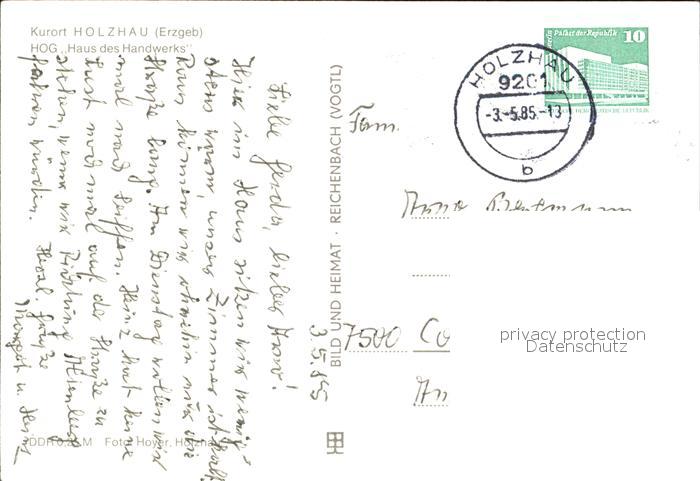 Kurort HOLZHAU (Erzgeb)
HOG „Haus des Handwerks"
3.5.85
Liebe Gerda, lieber
Hier im Haus sitzen wir wenig
unser Zimmer ist kalt.
Raus können wir ohnehin nur die
Straße lang. Am Dienstag wollen wir
mal nach Seiffen. Heinz hat keine
Lust noch mal auf der Straße zu
stehen, wenn wir Richtung
fahren würden. Herzl. Grüße
Margot u. Heinz
DDR 0, M Foto: Hoyer, Holzhau
BILD UND HEIMAT · REICHENBACH (VOGTL)
Palast der Republik 10
HOLZHAU
9201
-3.-5.85.-13
b
Fam.
7500 Co
privacy protection
Datenschutz